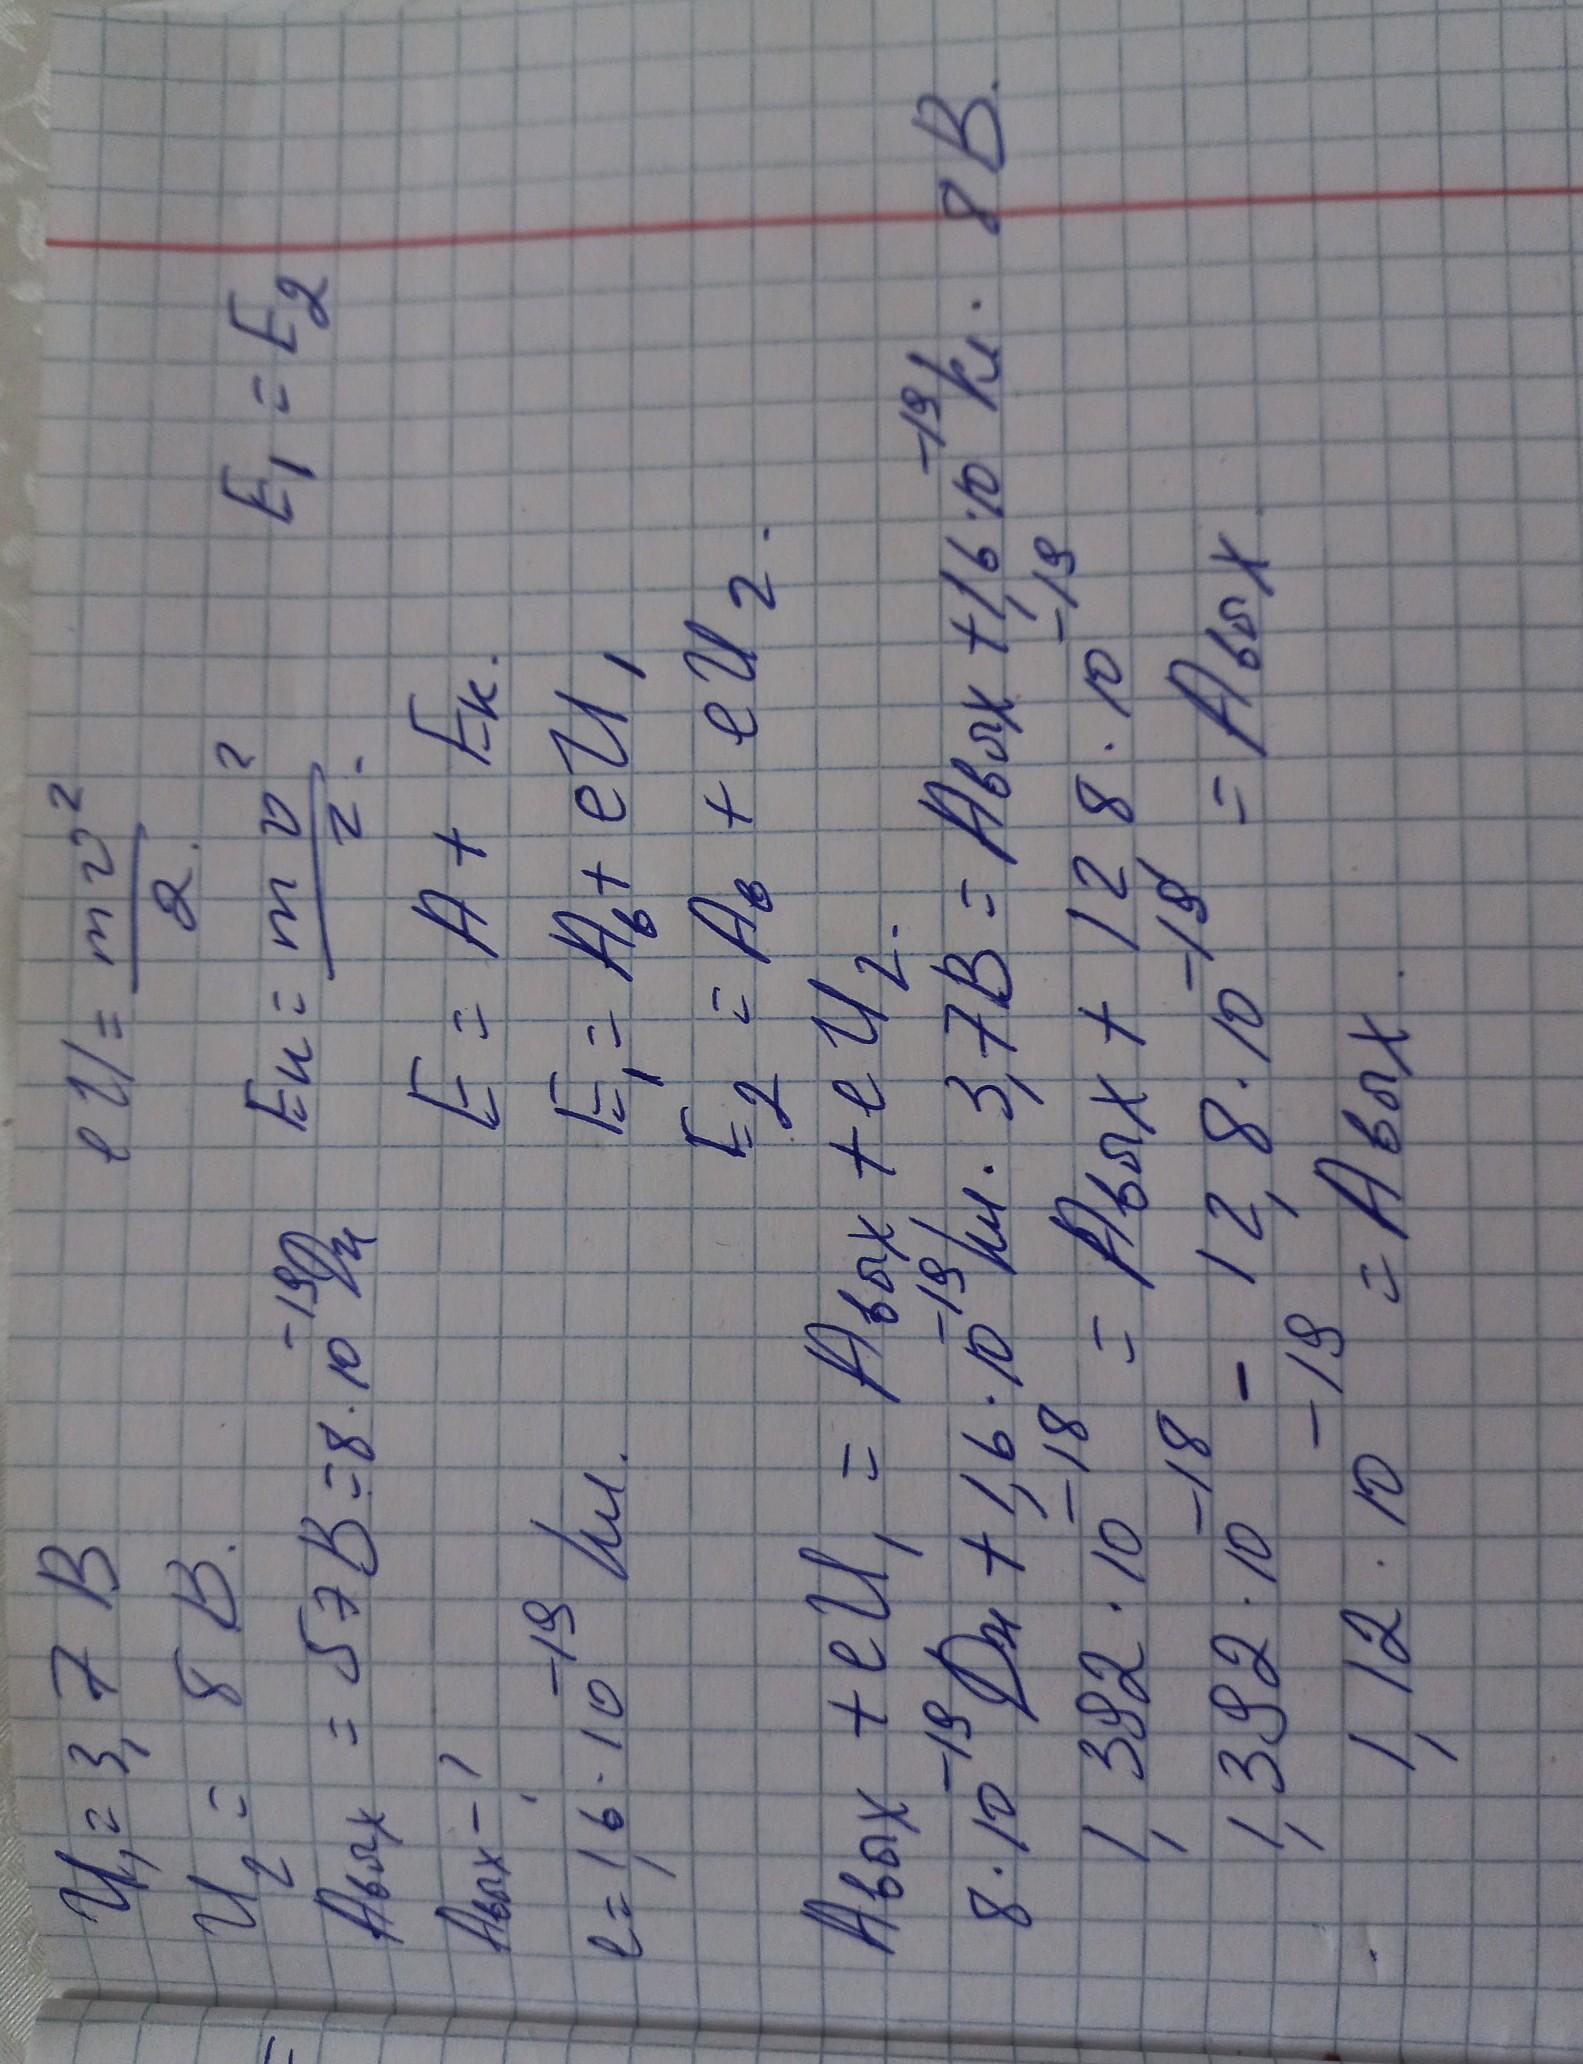 U₁ = 3,7 В
U₂ = 8 В.
Aвых = 57В = 8·10⁻¹⁹Дж
Aвых - ?
e = 1,6·10⁻¹⁹ Кл.
eU = mv²/2.
Eк = mv²/2.
E₁ = E₂
E = A + Eк.
E₁ = Aв + eU₁
E₂ = Aв + eU₂.
Aвых + eU₁ = Aвых + eU₂.
8·10⁻¹⁹Дж + 1,6·10⁻¹⁹Кл · 3,7В = Aвых + 1,6·10⁻¹⁹Кл · 8В.
1,392·10⁻¹⁸ = Aвых + 128·10⁻¹⁹
1,392·10⁻¹⁸ - 12,8·10⁻¹⁹ = Aвых
1,12·10⁻¹⁹ = Aвых.